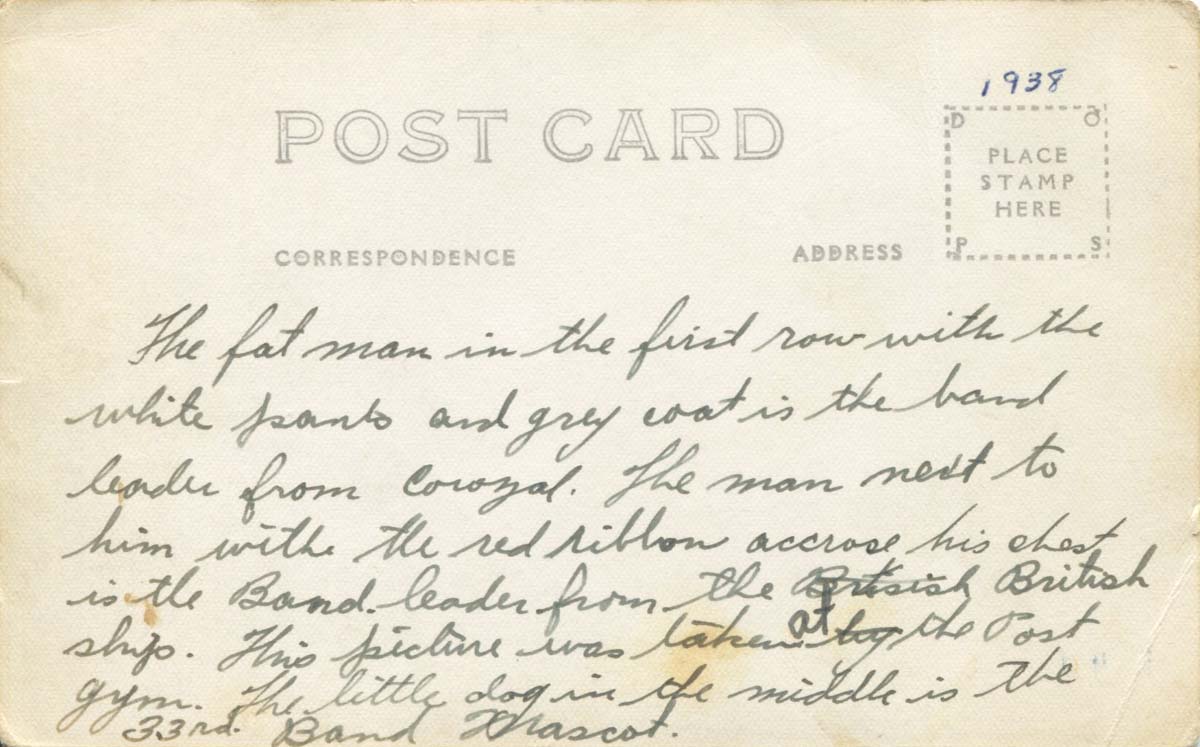 1938
POST CARD
D O
PLACE
STAMP
HERE
P S
CORRESPONDENCE
ADDRESS
The fat man in the first row with the
white pants and grey coat is the band
leader from Corozal. The man next to
him withe the red ribbon accrose his chest
is the Band leader from the Britsish British
ship. This picture was taken at by the Post
gym. The little dog in the middle is the
33rd. Band Mascot.